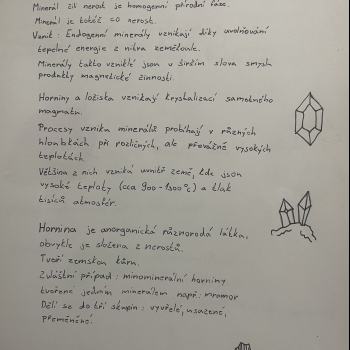 Minerál čili nerost je homogenní přírodní fáze.
Minerál je totéž co nerost.
Vznik: Endogenní minerály vznikají díky uvolňování
tepelné energie z nitra zeměkoule.
Minerály takto vzniklé jsou v širším slova smyslu
produkty magmatické činnosti.
Horniny a ložiska vznikají krystalizací samotného
magmatu.
Procesy vzniku minerálů probíhají v různých
hloubkách při rozličných, ale převážně vysokých
teplotách.
Většina z nich vzniká uvnitř země, kde jsou
vysoké teploty (cca 900-1300°C) a tlak
tisíců atmosfér.
Hornina je anorganická různorodá látka,
obvykle je složena z nerostů.
Tvoří zemskou kůru.
Zvláštní případ: monominerální horniny
tvořené jedním minerálem např: mramor
Dělí se do tří skupin: vyvřelé, usazené,
přeměněné.